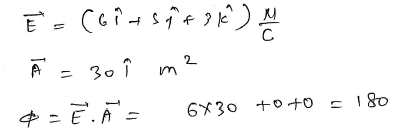 E⃗ = (6î + 5ĵ + 3k̂) N/C
A⃗ = 30 î m²
φ = E⃗ . A⃗ = 6×30 +0+0 = 180